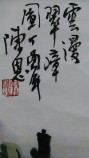 雲漫
翠嶂
圖丁酉年
陳恩